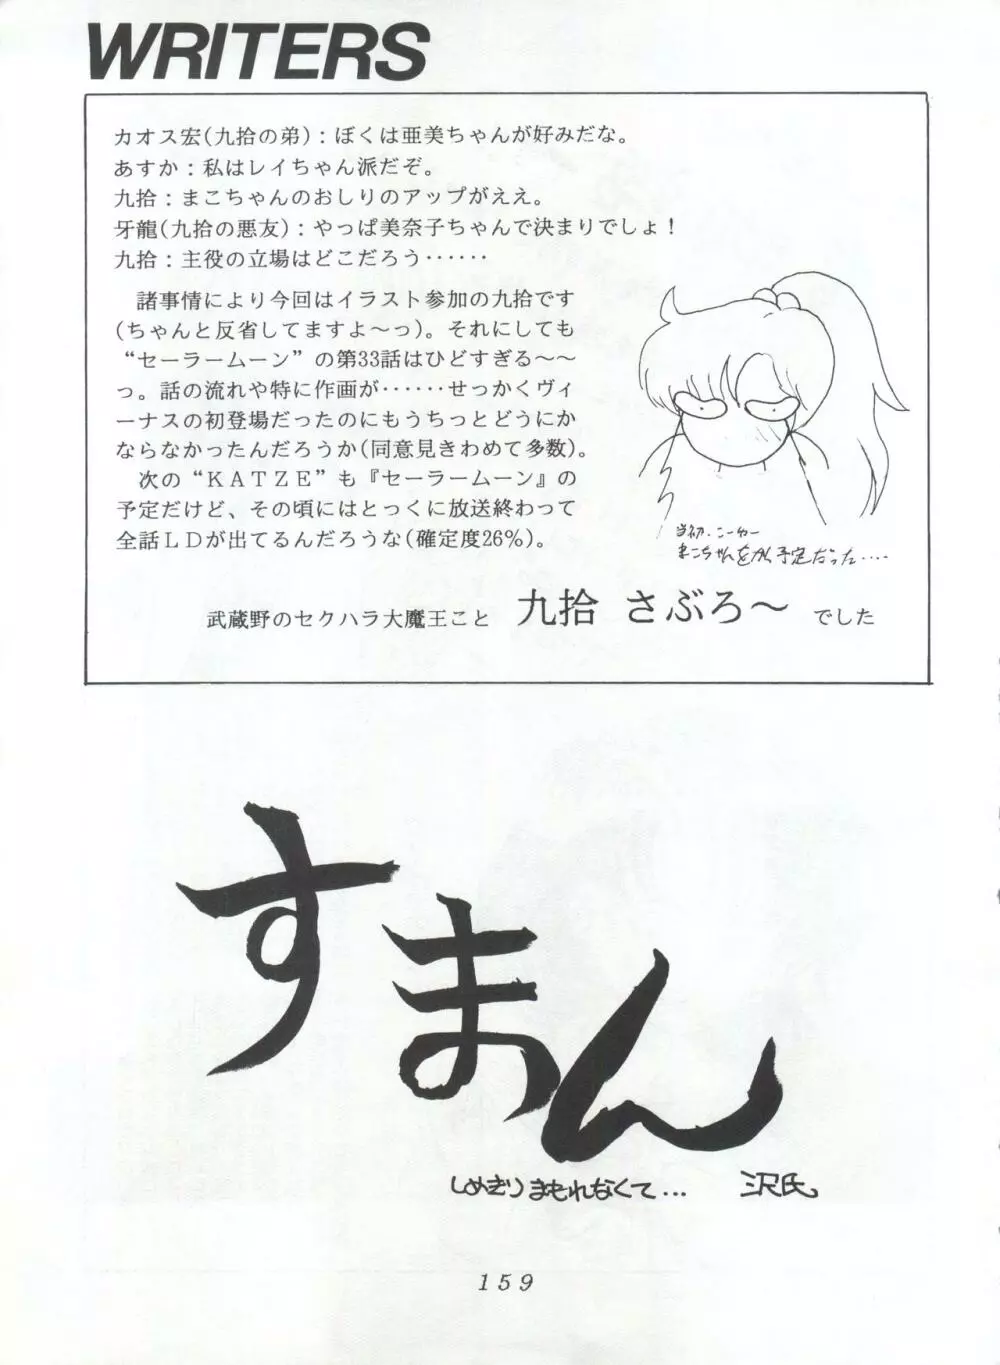 WRITERS
カオス宏(九拾の弟)：ぼくは亜美ちゃんが好みだな。
あすか：私はレイちゃん派だぞ。
九拾：まこちゃんのおしりのアップがええ。
牙龍(九拾の悪友)：やっぱ美奈子ちゃんで決まりでしょ！
九拾：主役の立場はどこだろう‥‥‥
　諸事情により今回はイラスト参加の九拾です
(ちゃんと反省してますよ～っ)。それにしても
“セーラームーン”の第33話はひどすぎる～～
っ。話の流れや特に作画が‥‥‥せっかくヴィ
ーナスの初登場だったのにもうちっとどうにか
ならなかったんだろうか(同意見きわめて多数)。
　次の“ＫＡＴＺＥ”も『セーラームーン』の
予定だけど、その頃にはとっくに放送終わって
全話ＬＤが出てるんだろうな(確定度26%)。
当初、こーゆー
まこちゃんをかく予定だった‥‥
武蔵野のセクハラ大魔王こと 九拾 さぶろ～ でした
すまん
しめきりまもれなくて… 三沢氏。
159